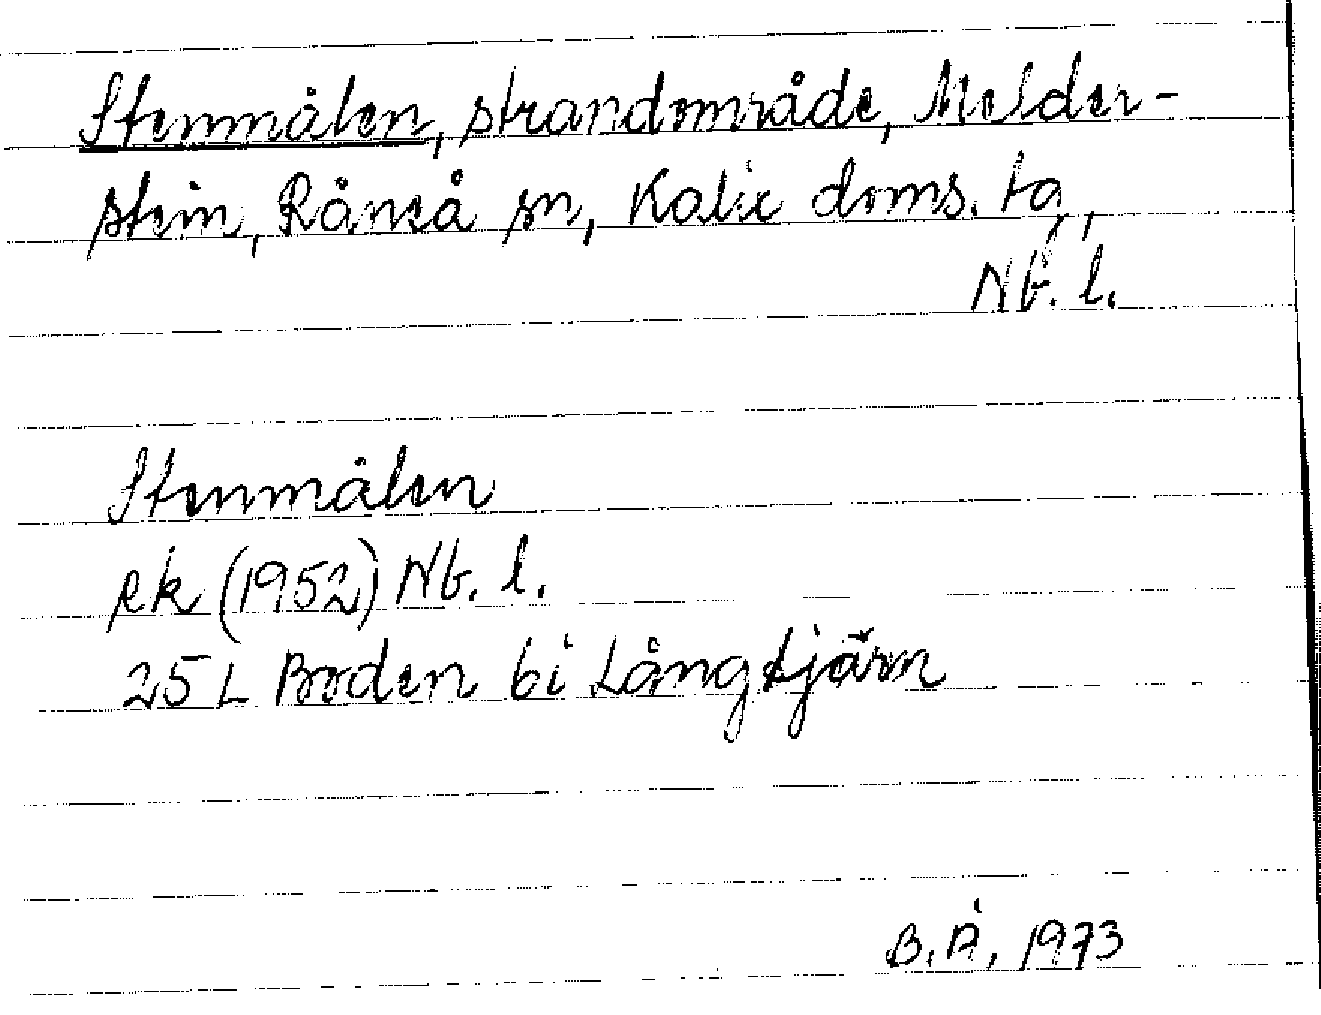 Stenmålen, strandområde, Melder-
stein, Råneå sn, Kalix doms. ta,
Nb. l.
Stenmålen
ek (1952) Nb. l.
25 L Boden 6i Långtjärn
B.Å, 1973